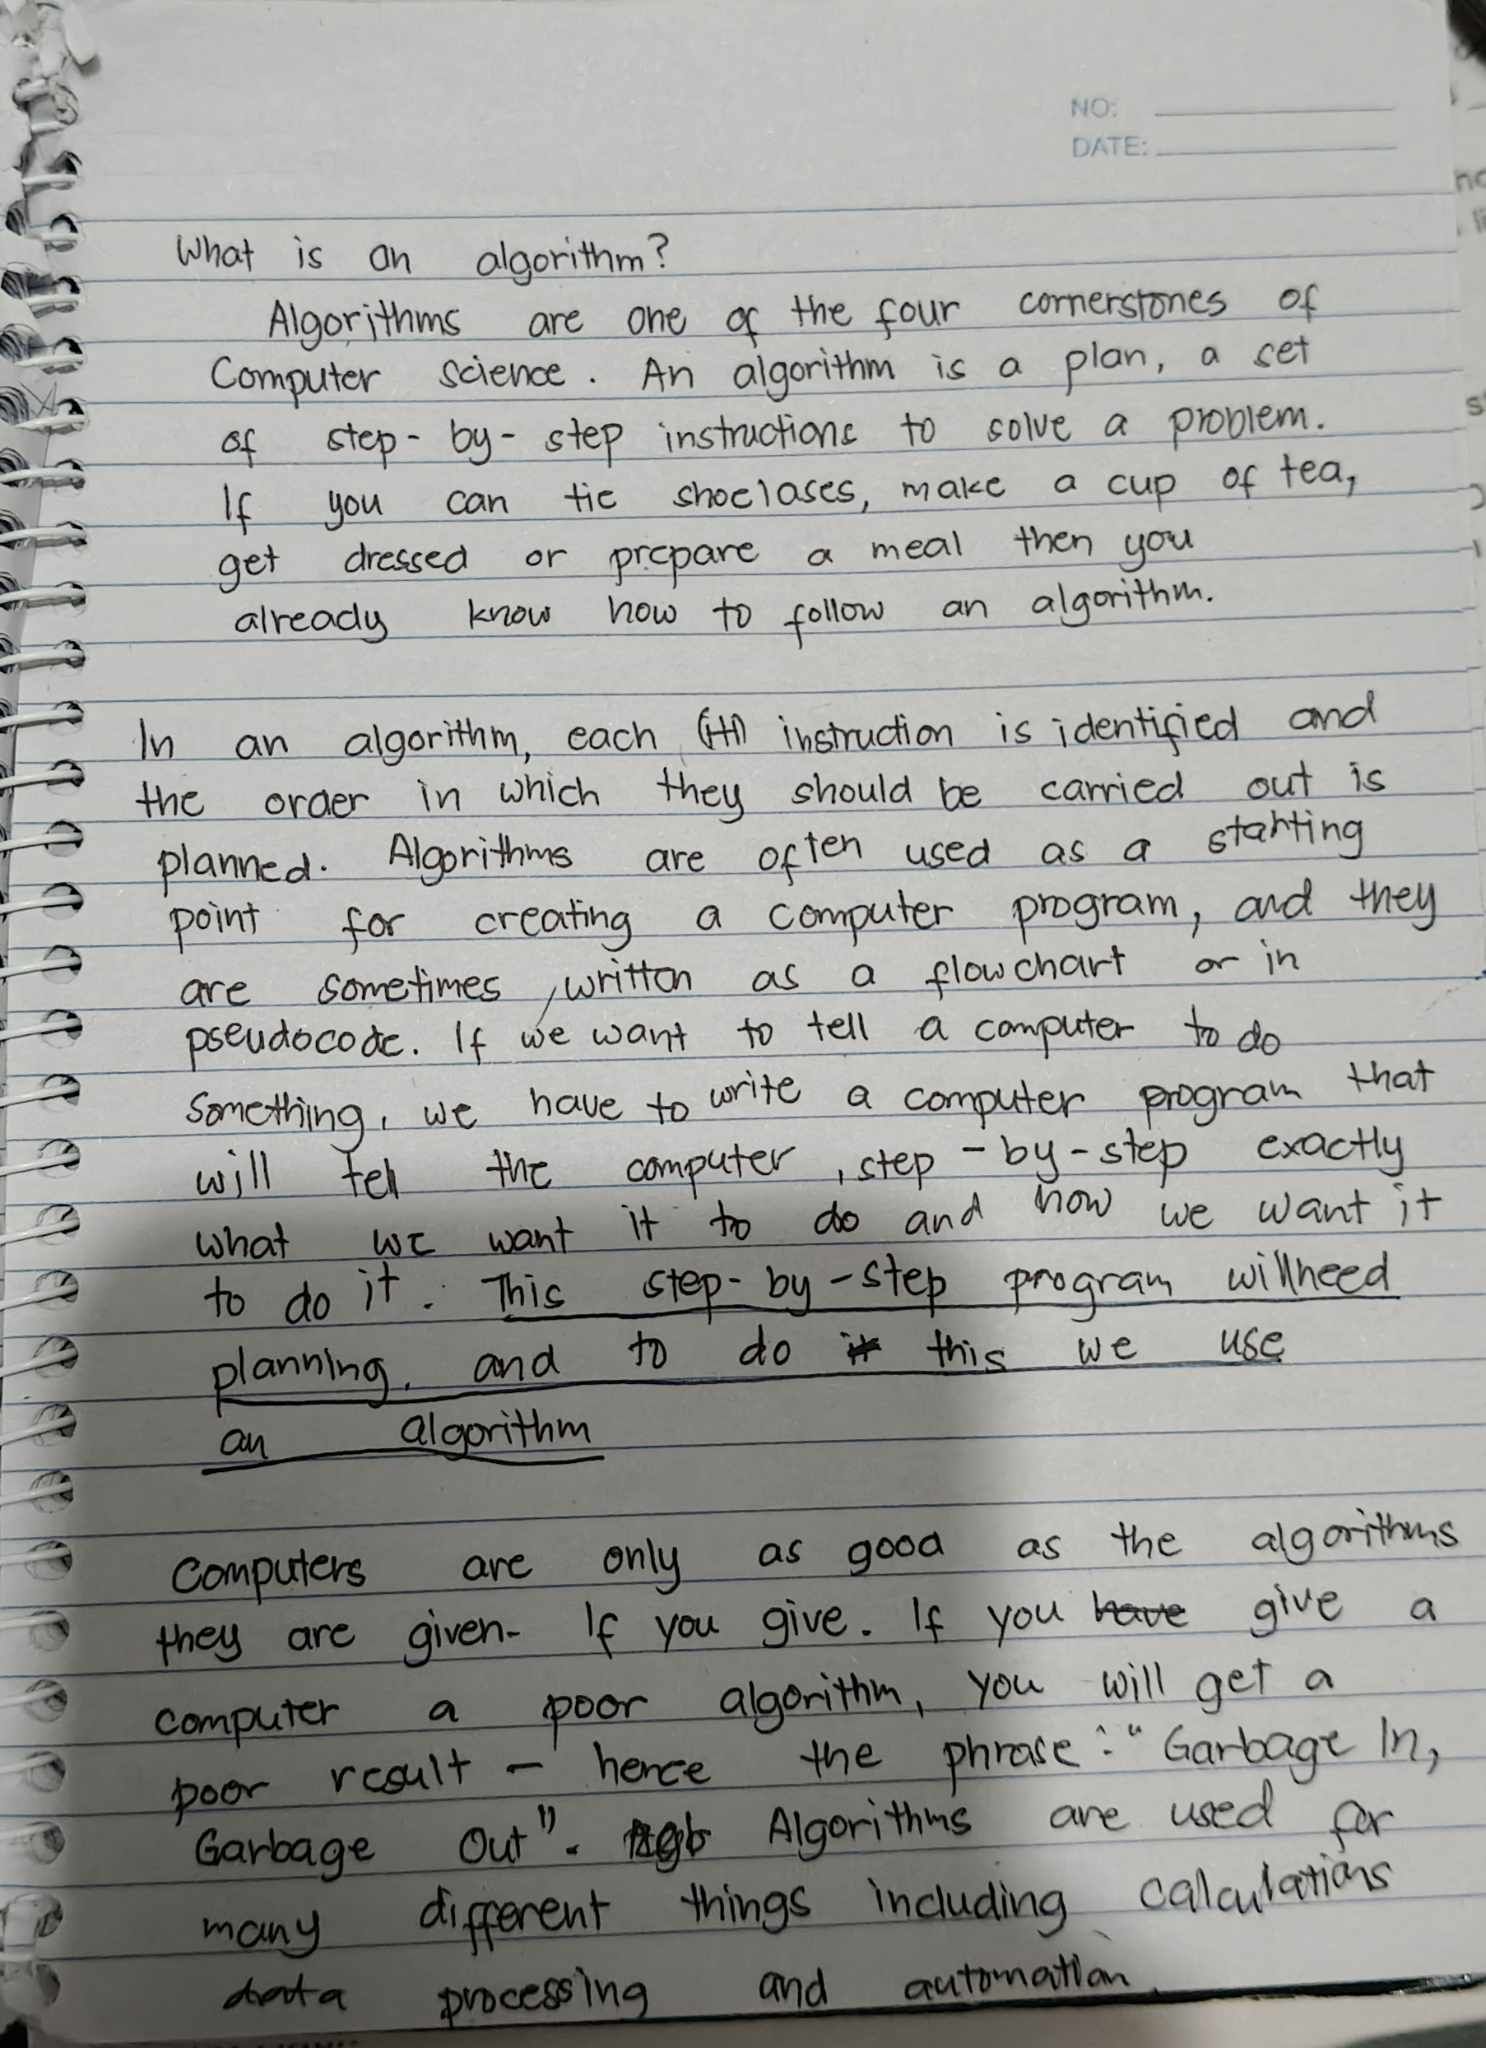 NO:
DATE:
What is an algorithm?
Algorithms are one of the four cornerstones of
Computer science. An algorithm is a plan, a set
of step-by-step instructions to solve a problem.
If you can tie shoelases, make a cup of tea,
get dressed or prepare a meal then you
already know how to follow an algorithm.
In an algorithm, each instruction is identified and
the order in which they should be carried out is
planned. Algorithms are often used as a starting
point for creating a computer program, and they
are sometimes written as a flowchart or in
pseudocode. If we want to tell a computer to do
something, we have to write a computer program that
will tell the computer, step-by-step exactly
what we want it to do and how we want it
to do it. This step-by-step program will need
planning, and to do this we use
an algorithm
Computers are only as good as the algorithms
they are given- If you give. If you have give a
computer a poor algorithm, you will get a
poor result - hence the phrase: "Garbage In,
Garbage Out". Algorithms are used for
many different things including calculations
data processing and automation.